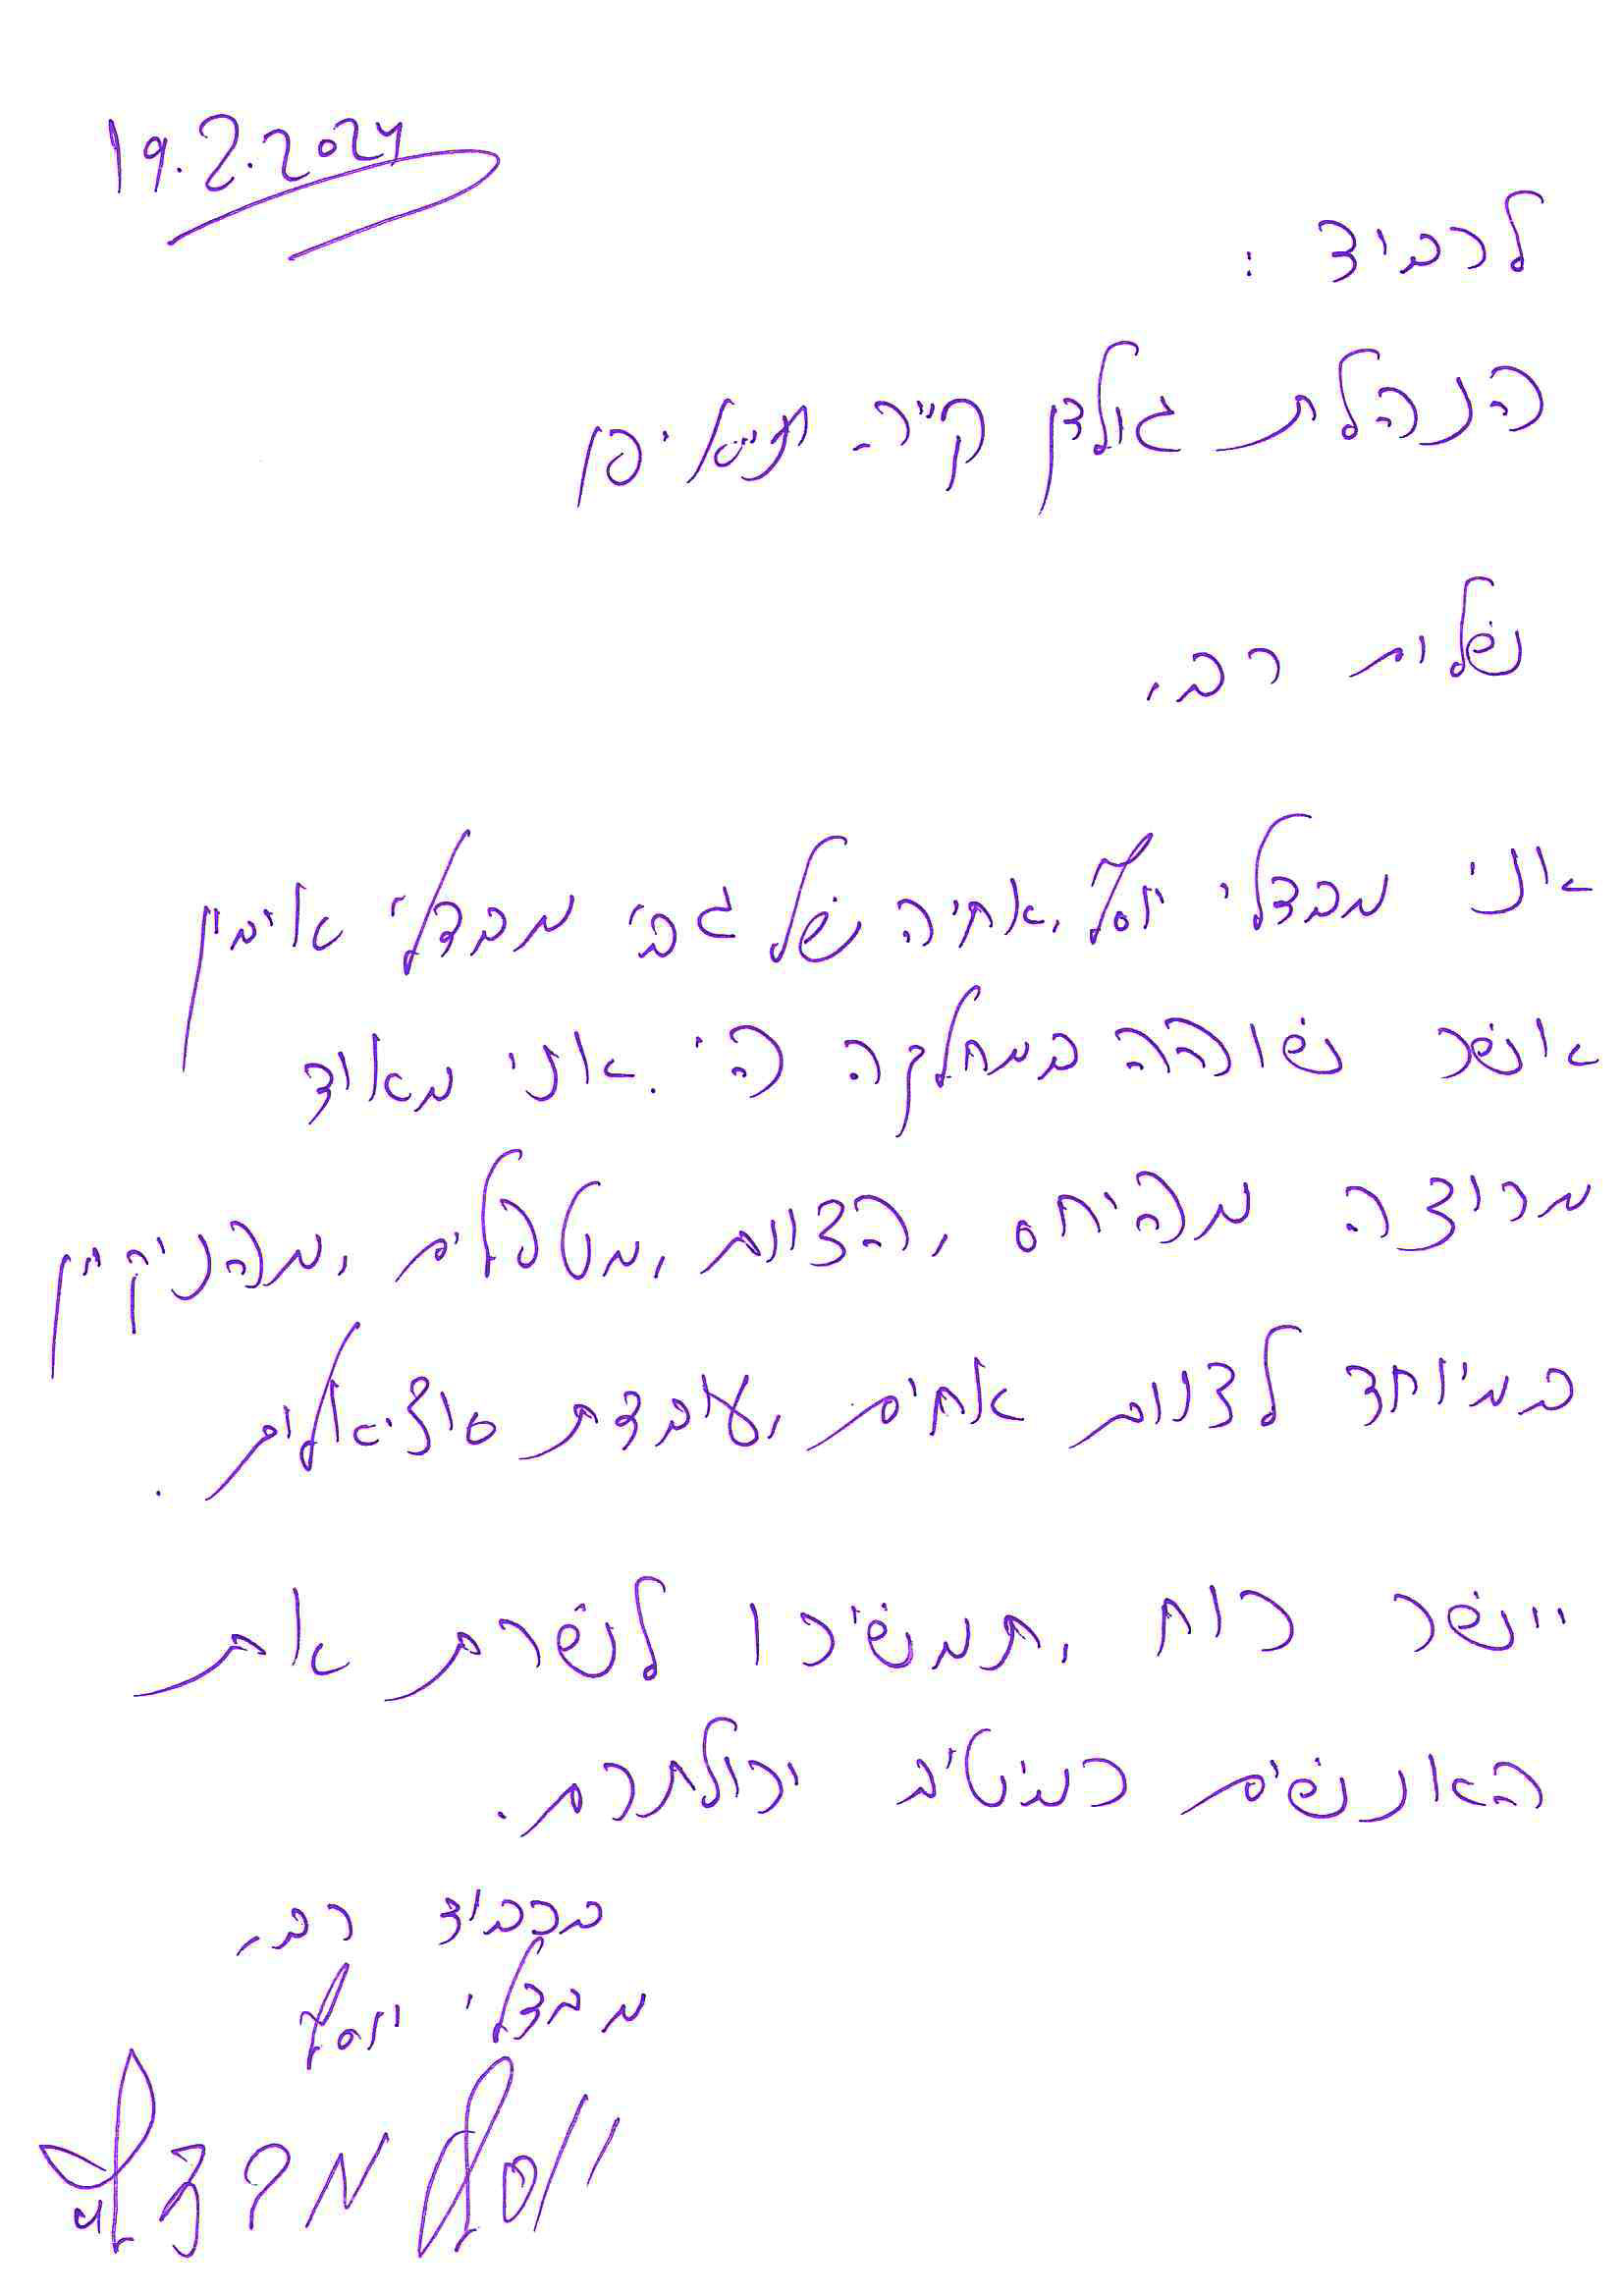 19.2.2024
לכבוד :
הנהלת גולדן קייר
שלום רב,
אני מבדלי יוסף, אחיה של גב' מבדלי אוילין
אשר שוהה במחלקה ה'. אני מאוד
מרוצה מהיחס, הצוות, מטפלים, מהניקיון
במיוחד לצוות אחים, עובדת סוציאלית.
יישר כוח, תמשיכו לשרת את
האנשים כמיטב יכולתכם.
בכבוד רב,
מבדלי יוסף
יוסף מבדלי